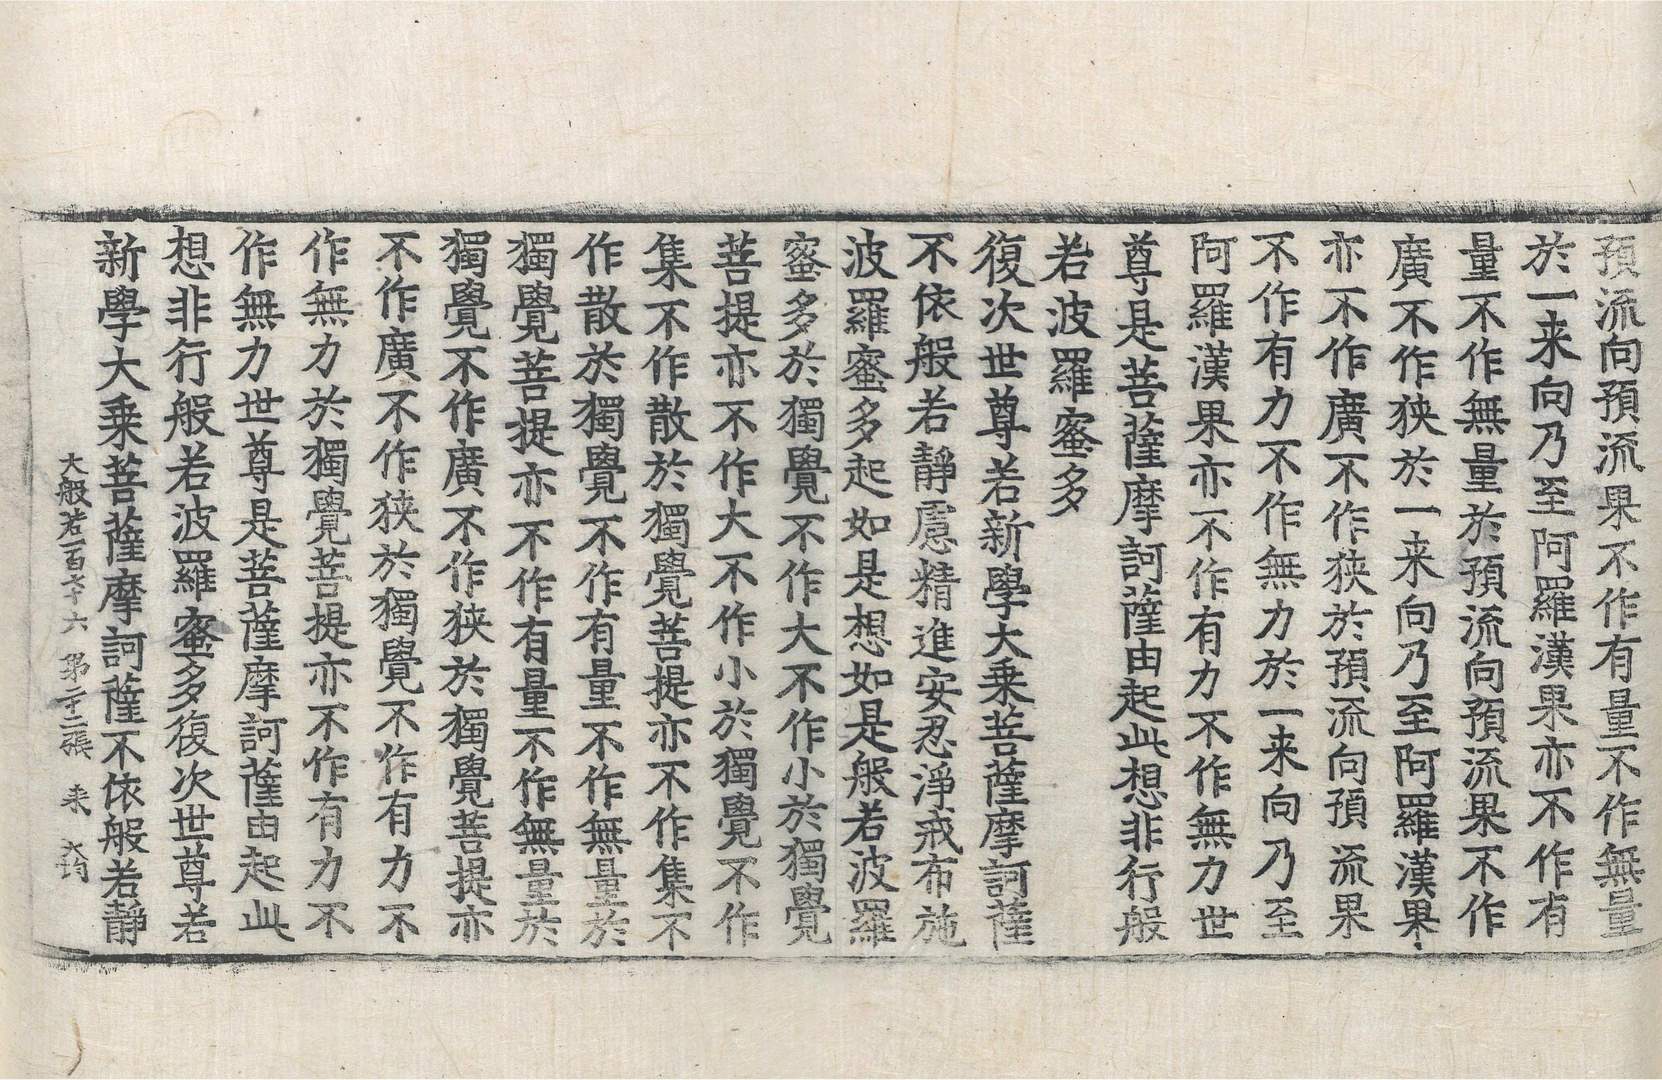 預流向預流果不作有量不作無量
於一来向乃至阿羅漢果亦不作有
量不作無量於預流向預流果不作
廣不作狹於一来向乃至阿羅漢果
亦不作廣不作狹於預流向預流果
不作有力不作無力於一来向乃至
阿羅漢果亦不作有力不作無力世
尊是菩薩摩訶薩由起此想非行般
若波羅蜜多
復次世尊若新學大乗菩薩摩訶薩
不依般若靜慮精進安忍淨戒布施
波羅蜜多起如是想如是般若波羅
蜜多於獨覺不作大不作小於獨覺
菩提亦不作大不作小於獨覺不作
集不作散於獨覺菩提亦不作集不
作散於獨覺不作有量不作無量於
獨覺菩提亦不作有量不作無量於
獨覺不作廣不作狹於獨覺菩提亦
不作廣不作狹於獨覺不作有力不
作無力於獨覺菩提亦不作有力不
作無力世尊是菩薩摩訶薩由起此
想非行般若波羅蜜多復次世尊若
新學大乗菩薩摩訶薩不依般若靜
大般若一百七十六 第二十二張 来 大均